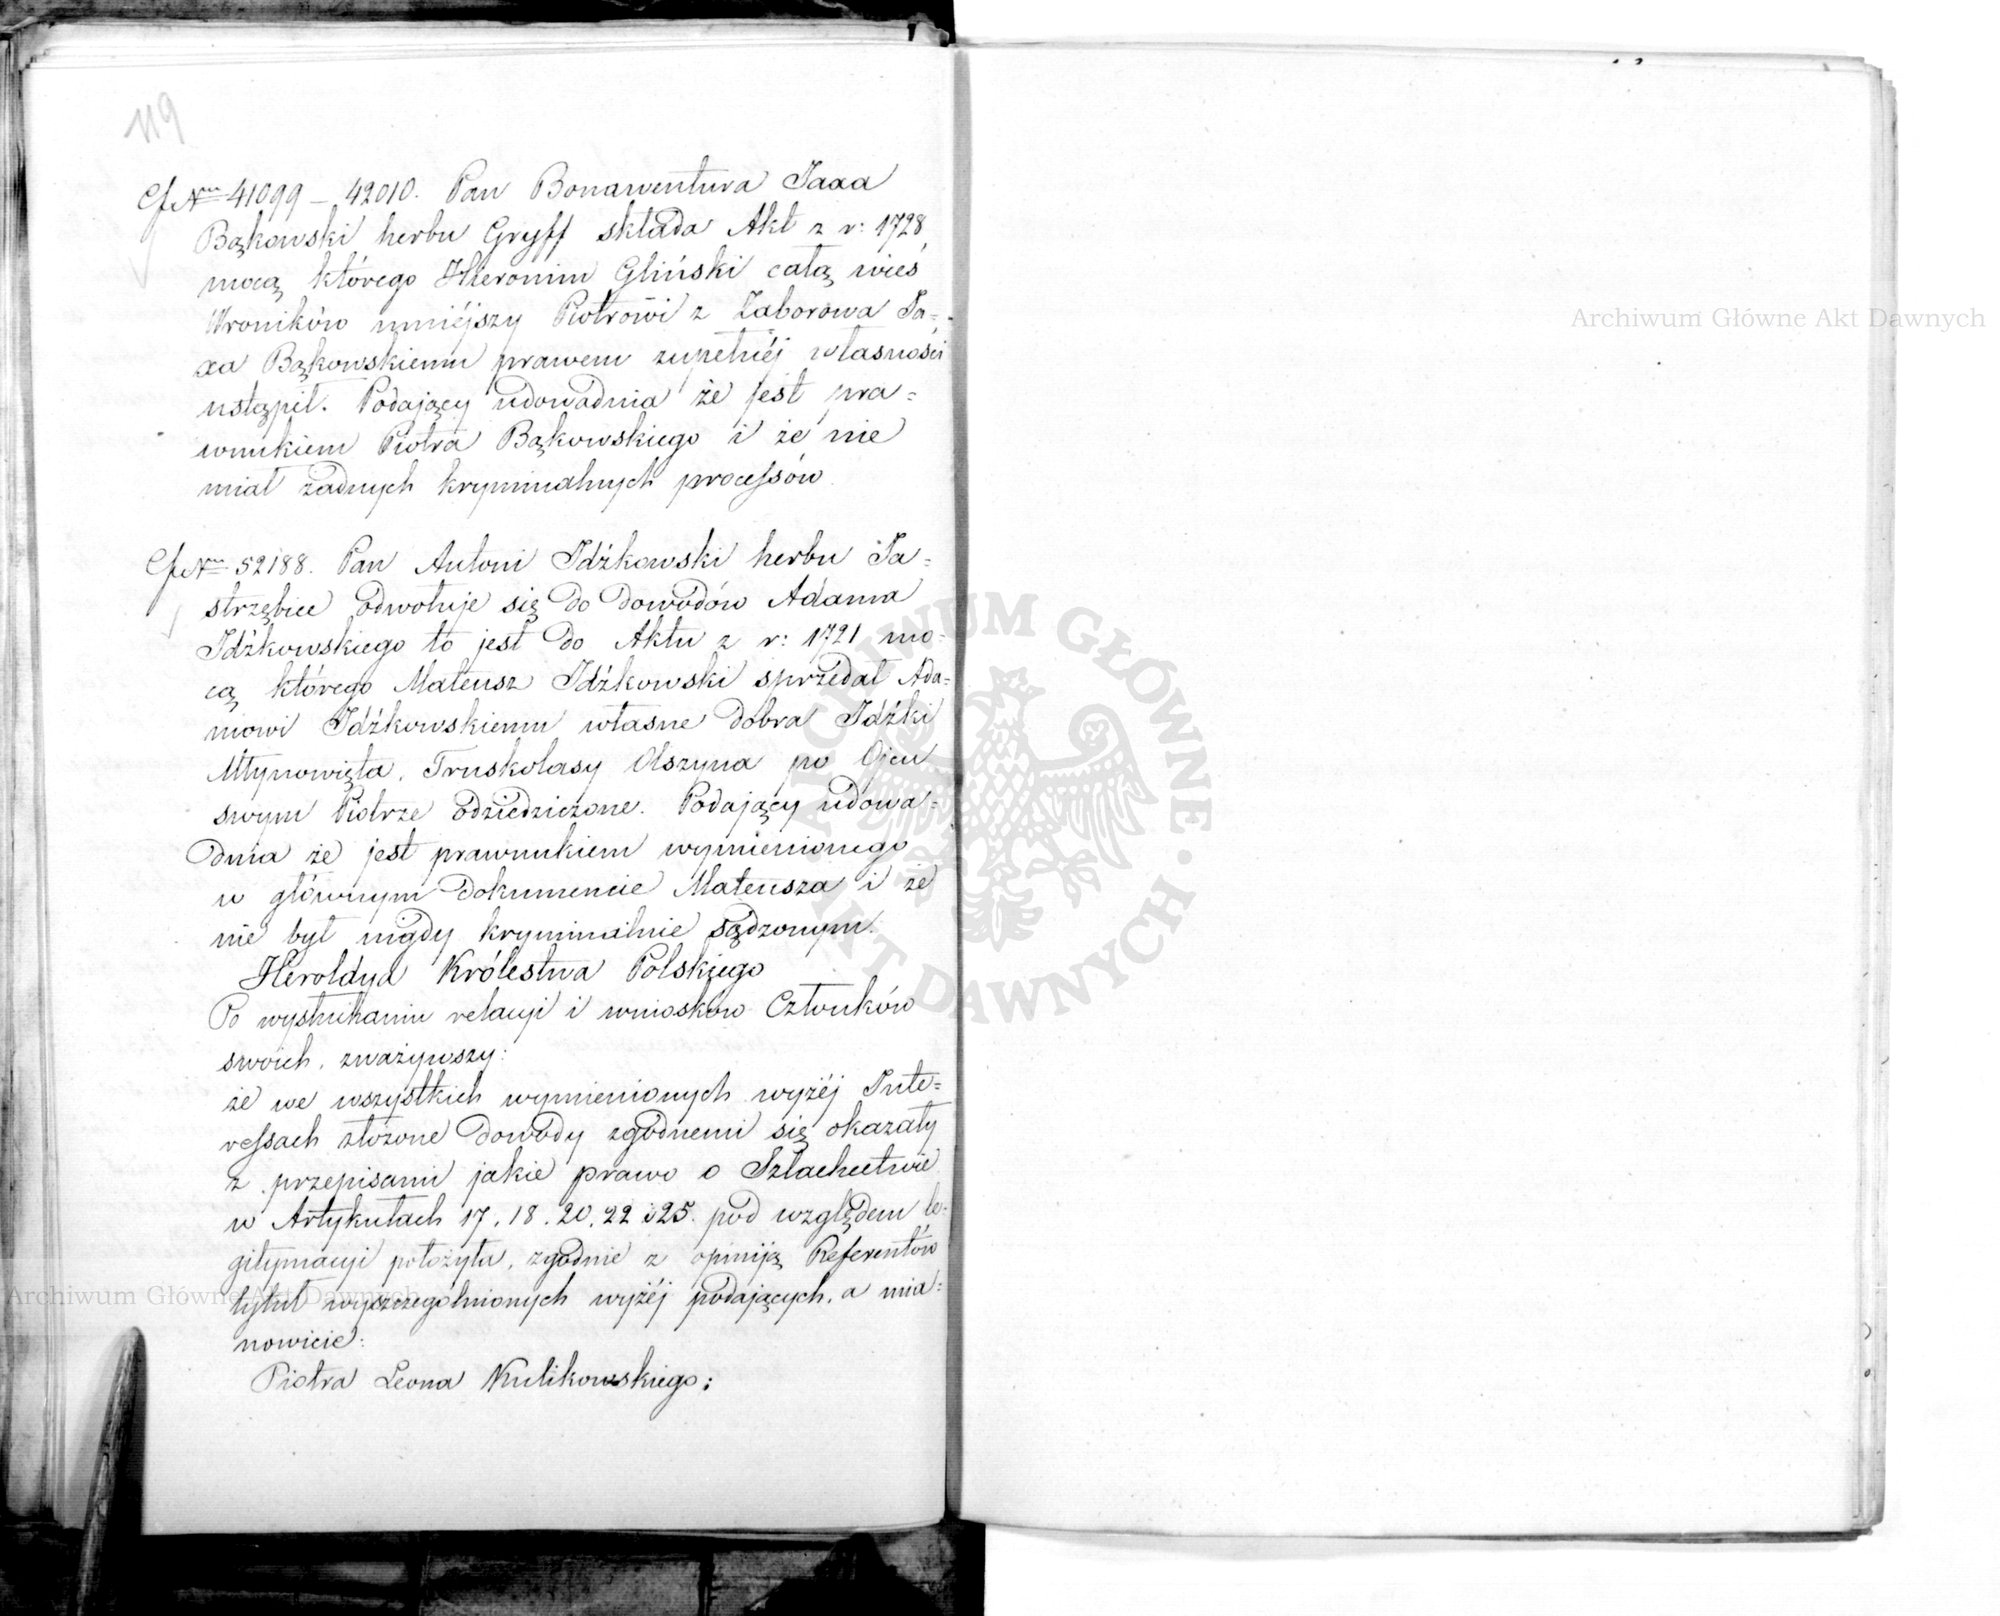 119
Cf Nm 41099 – 42010. Pan Bonawentura Jaxa
Bąkowski herbu Gryff składa Akt z r: 1728,
mocą którego Hieronim Gliński całą wieś
Wroników mniéjszy Piotrowi z Zaborowa Ja=
xa Bąkowskiemu prawem zupełnéj własności
ustąpił. Podający udowadnia że jest pra=
wnukiem Piotra Bąkowskiego i że nie
miał żadnych kryminalnych processów.
Cf Nm 52188. Pan Antoni Idźkowski herbu Ja=
strzębiec odwołuje się do dowodów Adama
Idźkowskiego to jest do Aktu z r: 1721 mo=
cą którego Mateusz Idźkowski sprzedał Ada=
mowi Idźkowskiemu własne dobra Idźki
Młynowięta, Truskolasy Olszyna po Ojcu
swym Piotrze odziedziczone. Podający udowa=
dnia że jest prawnukiem wymienionego
w głównym dokumencie Mateusza i że
nie był nigdy kryminalnie sądzonym.
Heroldya Królestwa Polskiego
Po wysłuchaniu relacyi i wniosków Członków
swoich, zważywszy:
że we wszystkich wymienionych wyżéj Inte=
ressach złożone dowody zgodnemi się okazały
z przepisami jakie prawo o Szlachectwie
w Artykułach 17, 18, 20, 22 i 25. pod względem le=
gitymacyi położyła, zgodnie z opinją Referentów
tytuł wyszczególnionych wyżéj podających, a mia=
nowicie:
Piotra Leona Kulikowskiego;
Archiwum Główne Akt Dawnych
ARCHIWUM GŁÓWNE · AKT DAWNYCH ·
Archiwum Główne Akt Dawnych